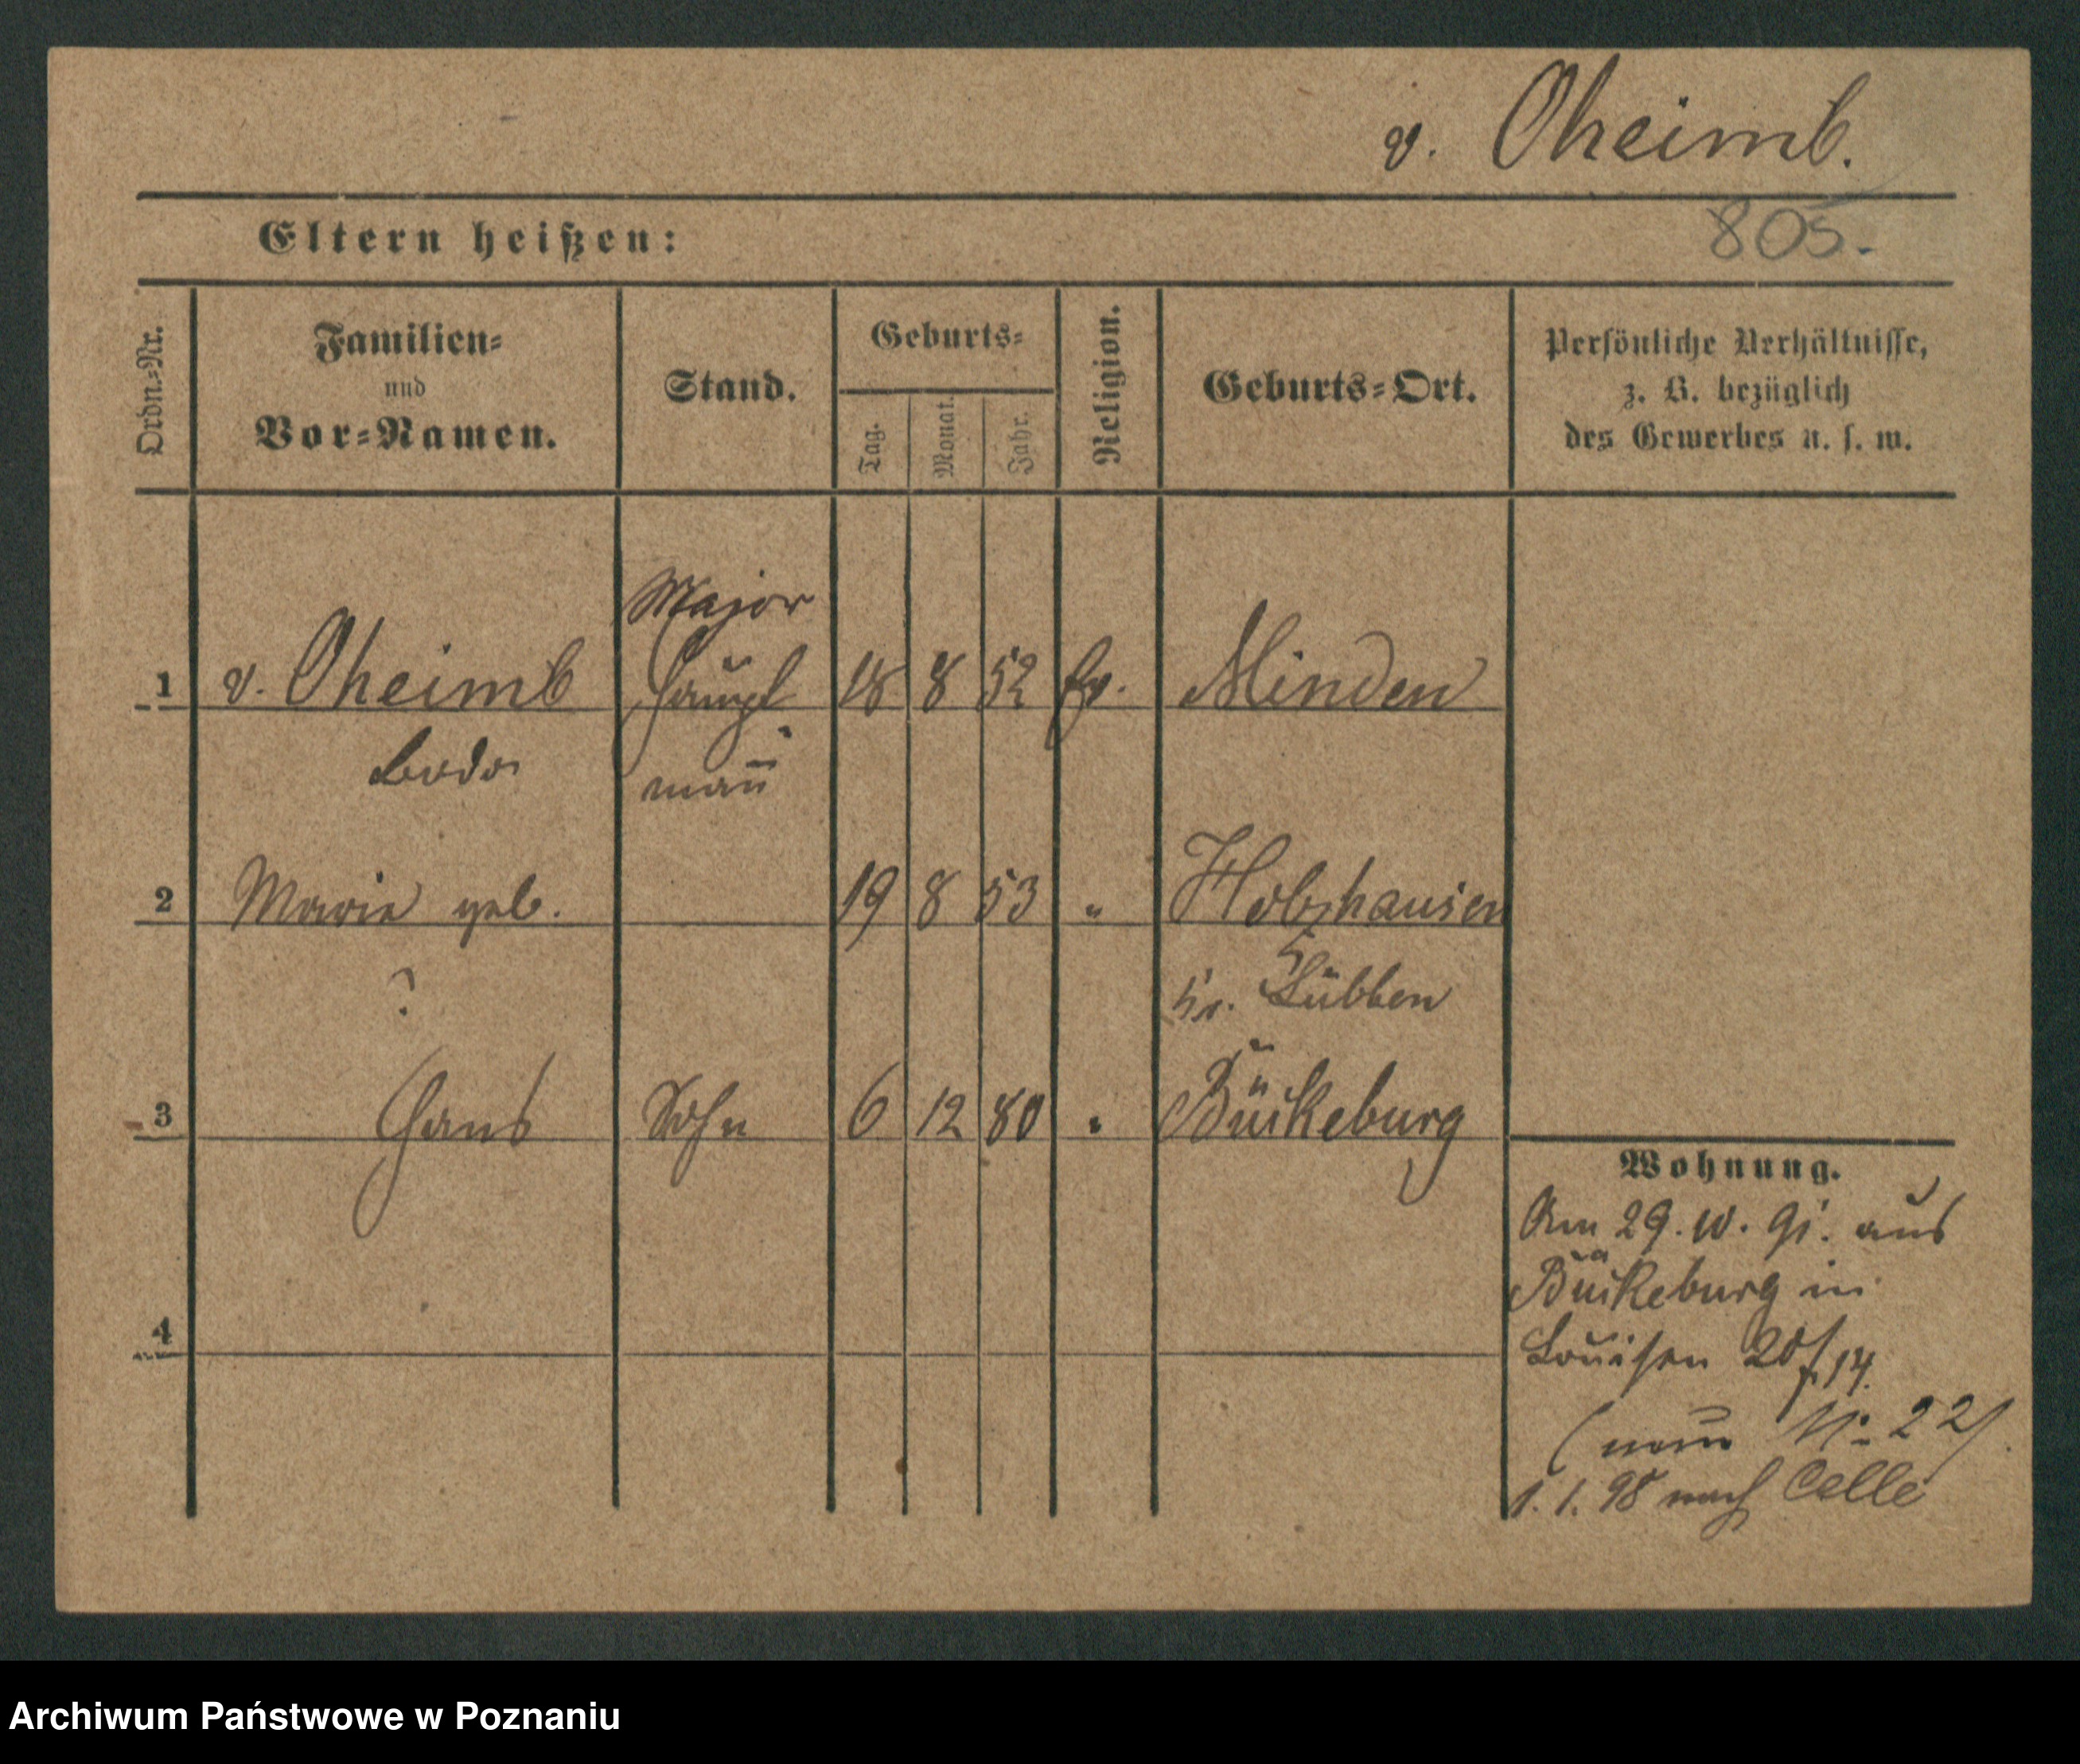 v. Oheimb.
805.
Eltern heißen:
Ordn.-Nr.
Familien-
und
Vor-Namen.
Stand.
Geburts-
Tag.
Monat.
Jahr.
Religion.
Geburts-Ort.
Persönliche Verhältnisse,
z. B. bezüglich
des Gewerbes u. s. w.
Major
1 v. Oheimb Haupt 18 8 52 Ev. Minden
Bodo man̄
2 Marie geb. 19 8 53 " Holzhausen
? Kr. Lübben
3 Hans Sohn 6 12 80 " Bückeburg
4
Wohnung.
Am 29. 10. 91. aus
Bückeburg in
Louisen 20/14
(neue No 22)
1. 1. 98 nach Celle
Archiwum Państwowe w Poznaniu